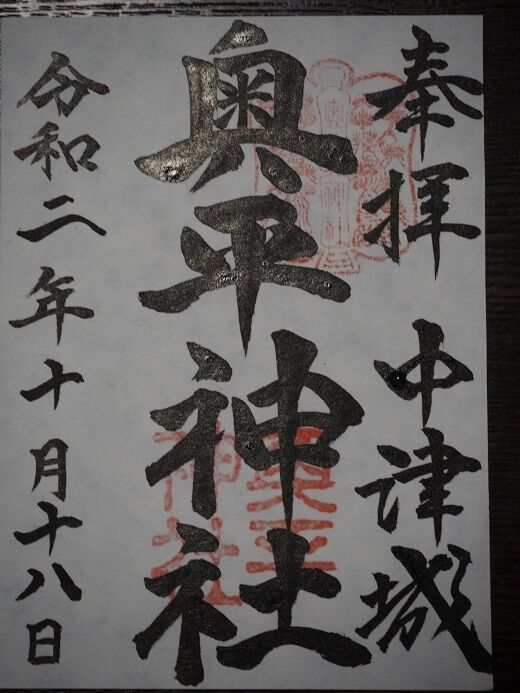 奉拝 中津城
奥平神社
令和二年十月十八日
奥平
神社